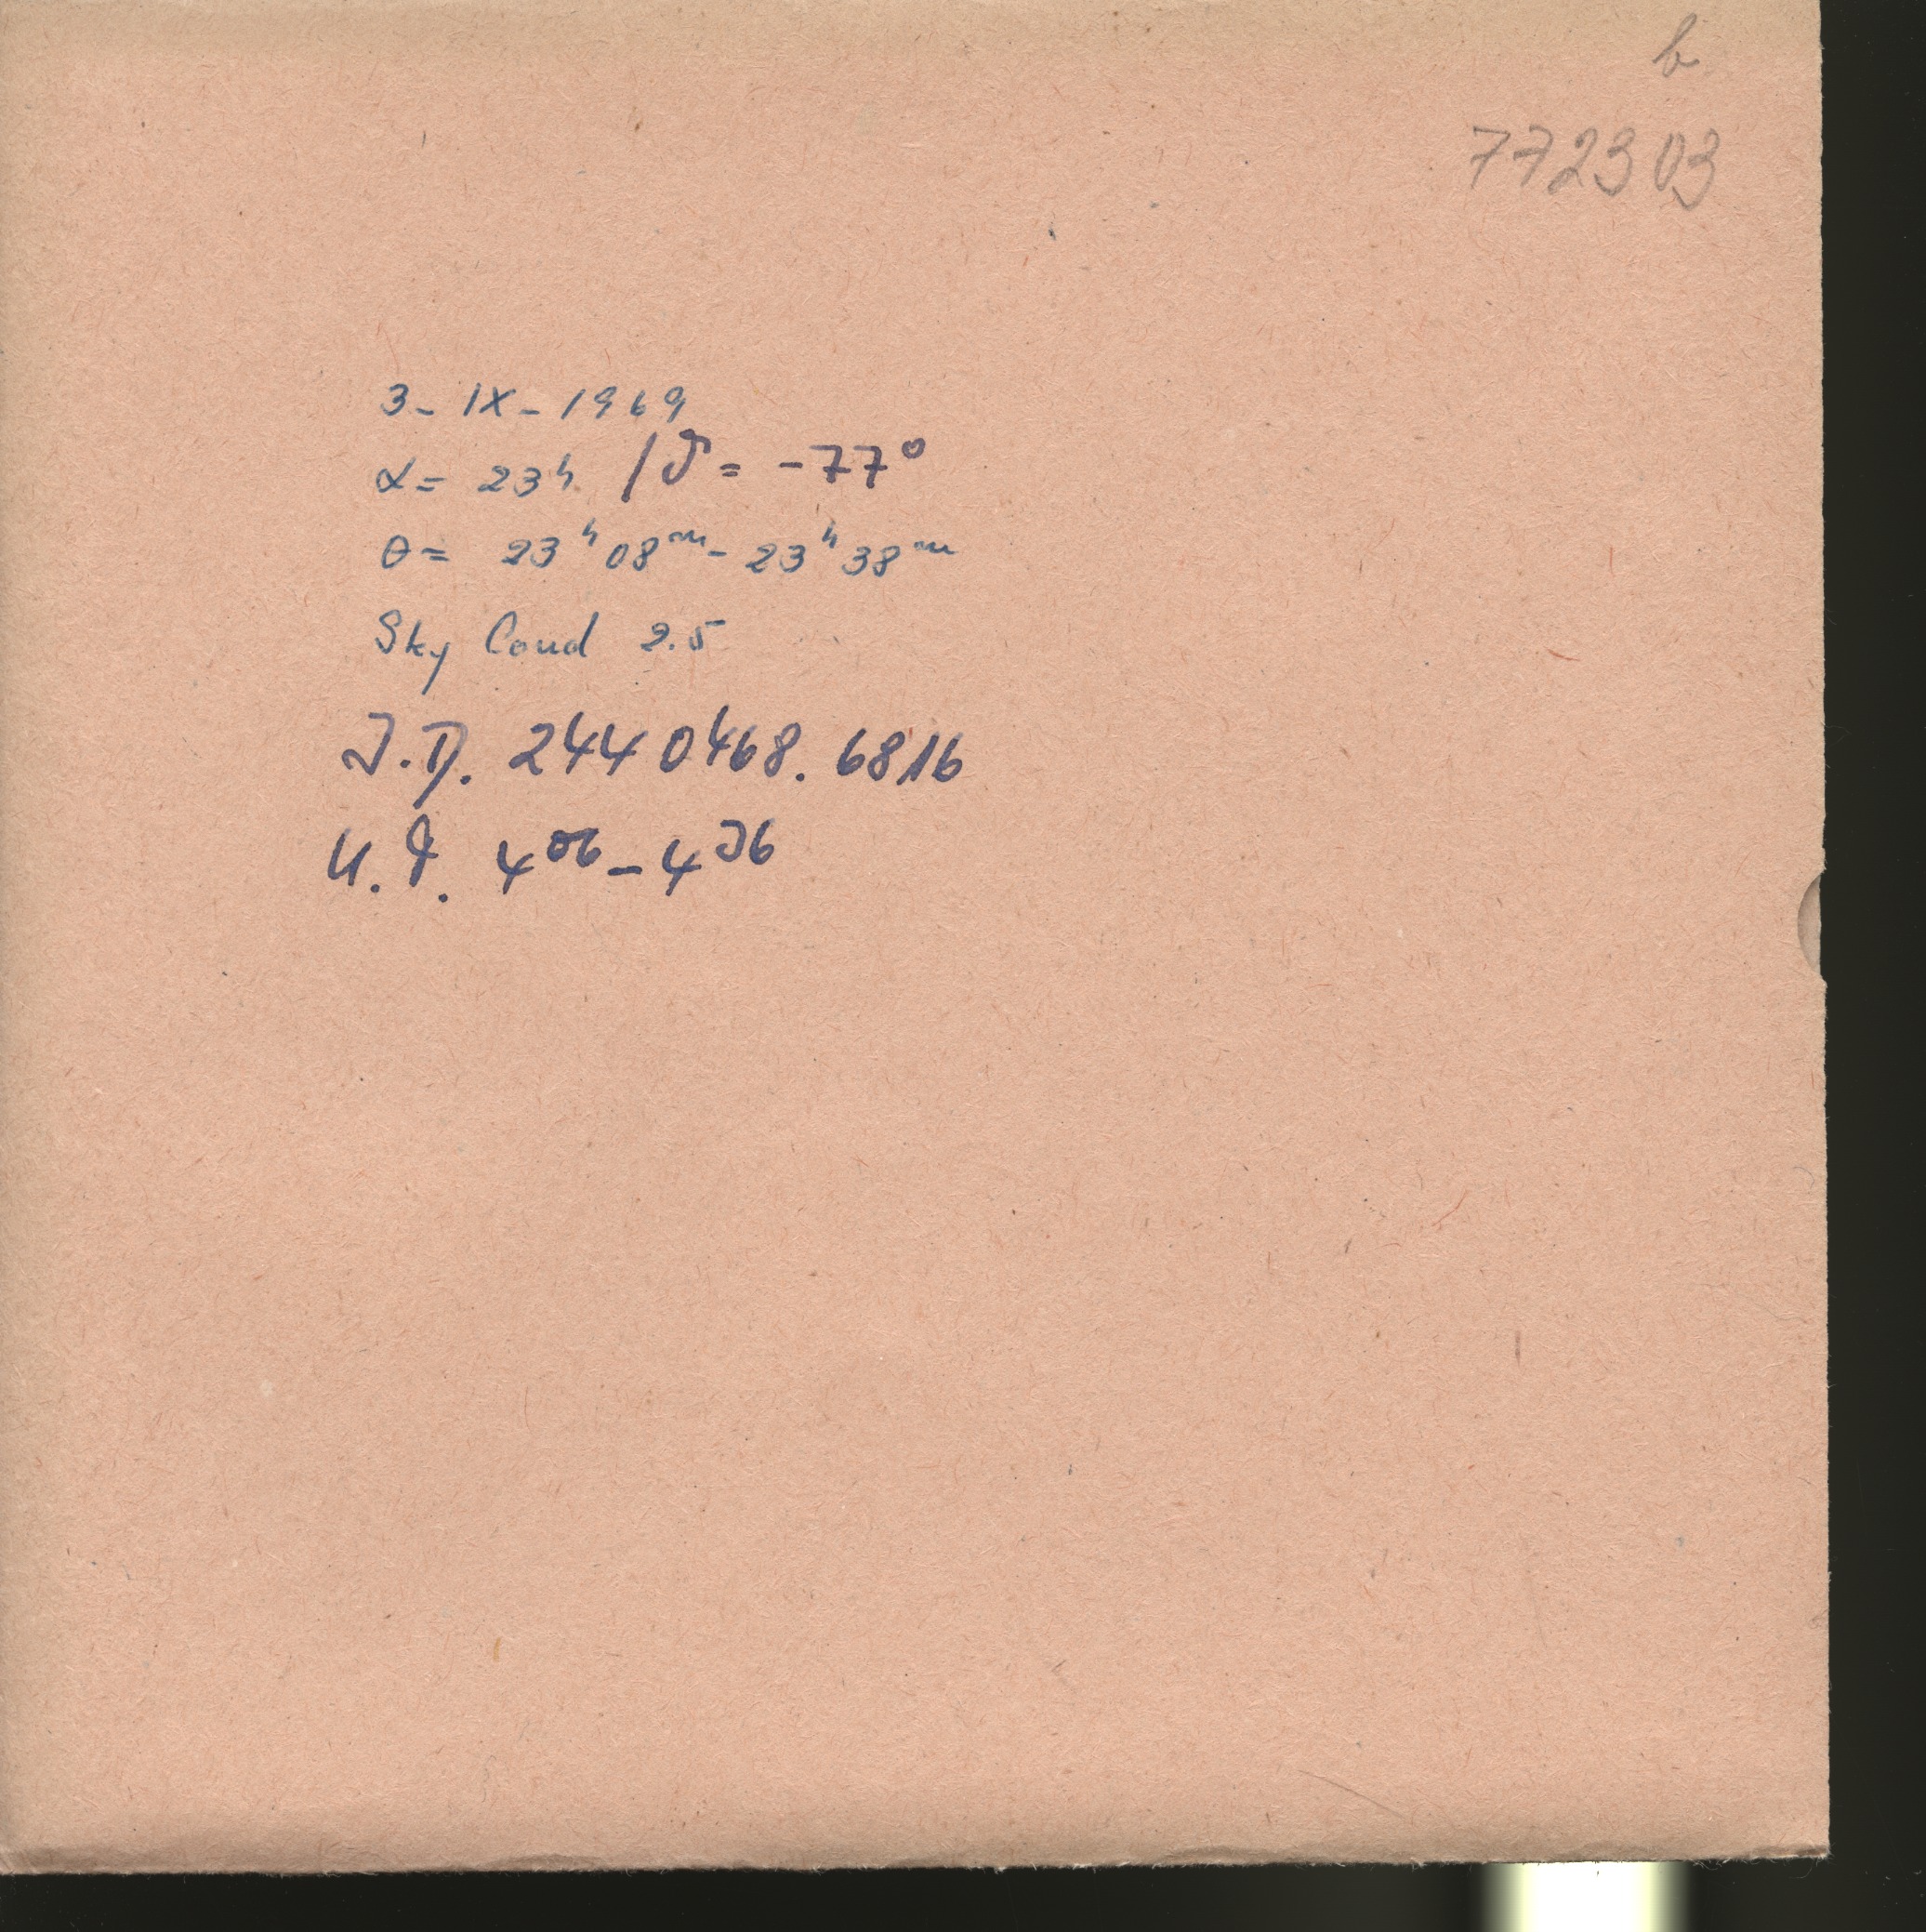 b
772303
3- IX- 1969
α= 23ʰ /δ= -77°
θ= 23ʰ08ᵐ- 23ʰ38ᵐ
Sky Cond 2.5
J.D. 2440468.6816
U.T. 4⁰⁶-4³⁶